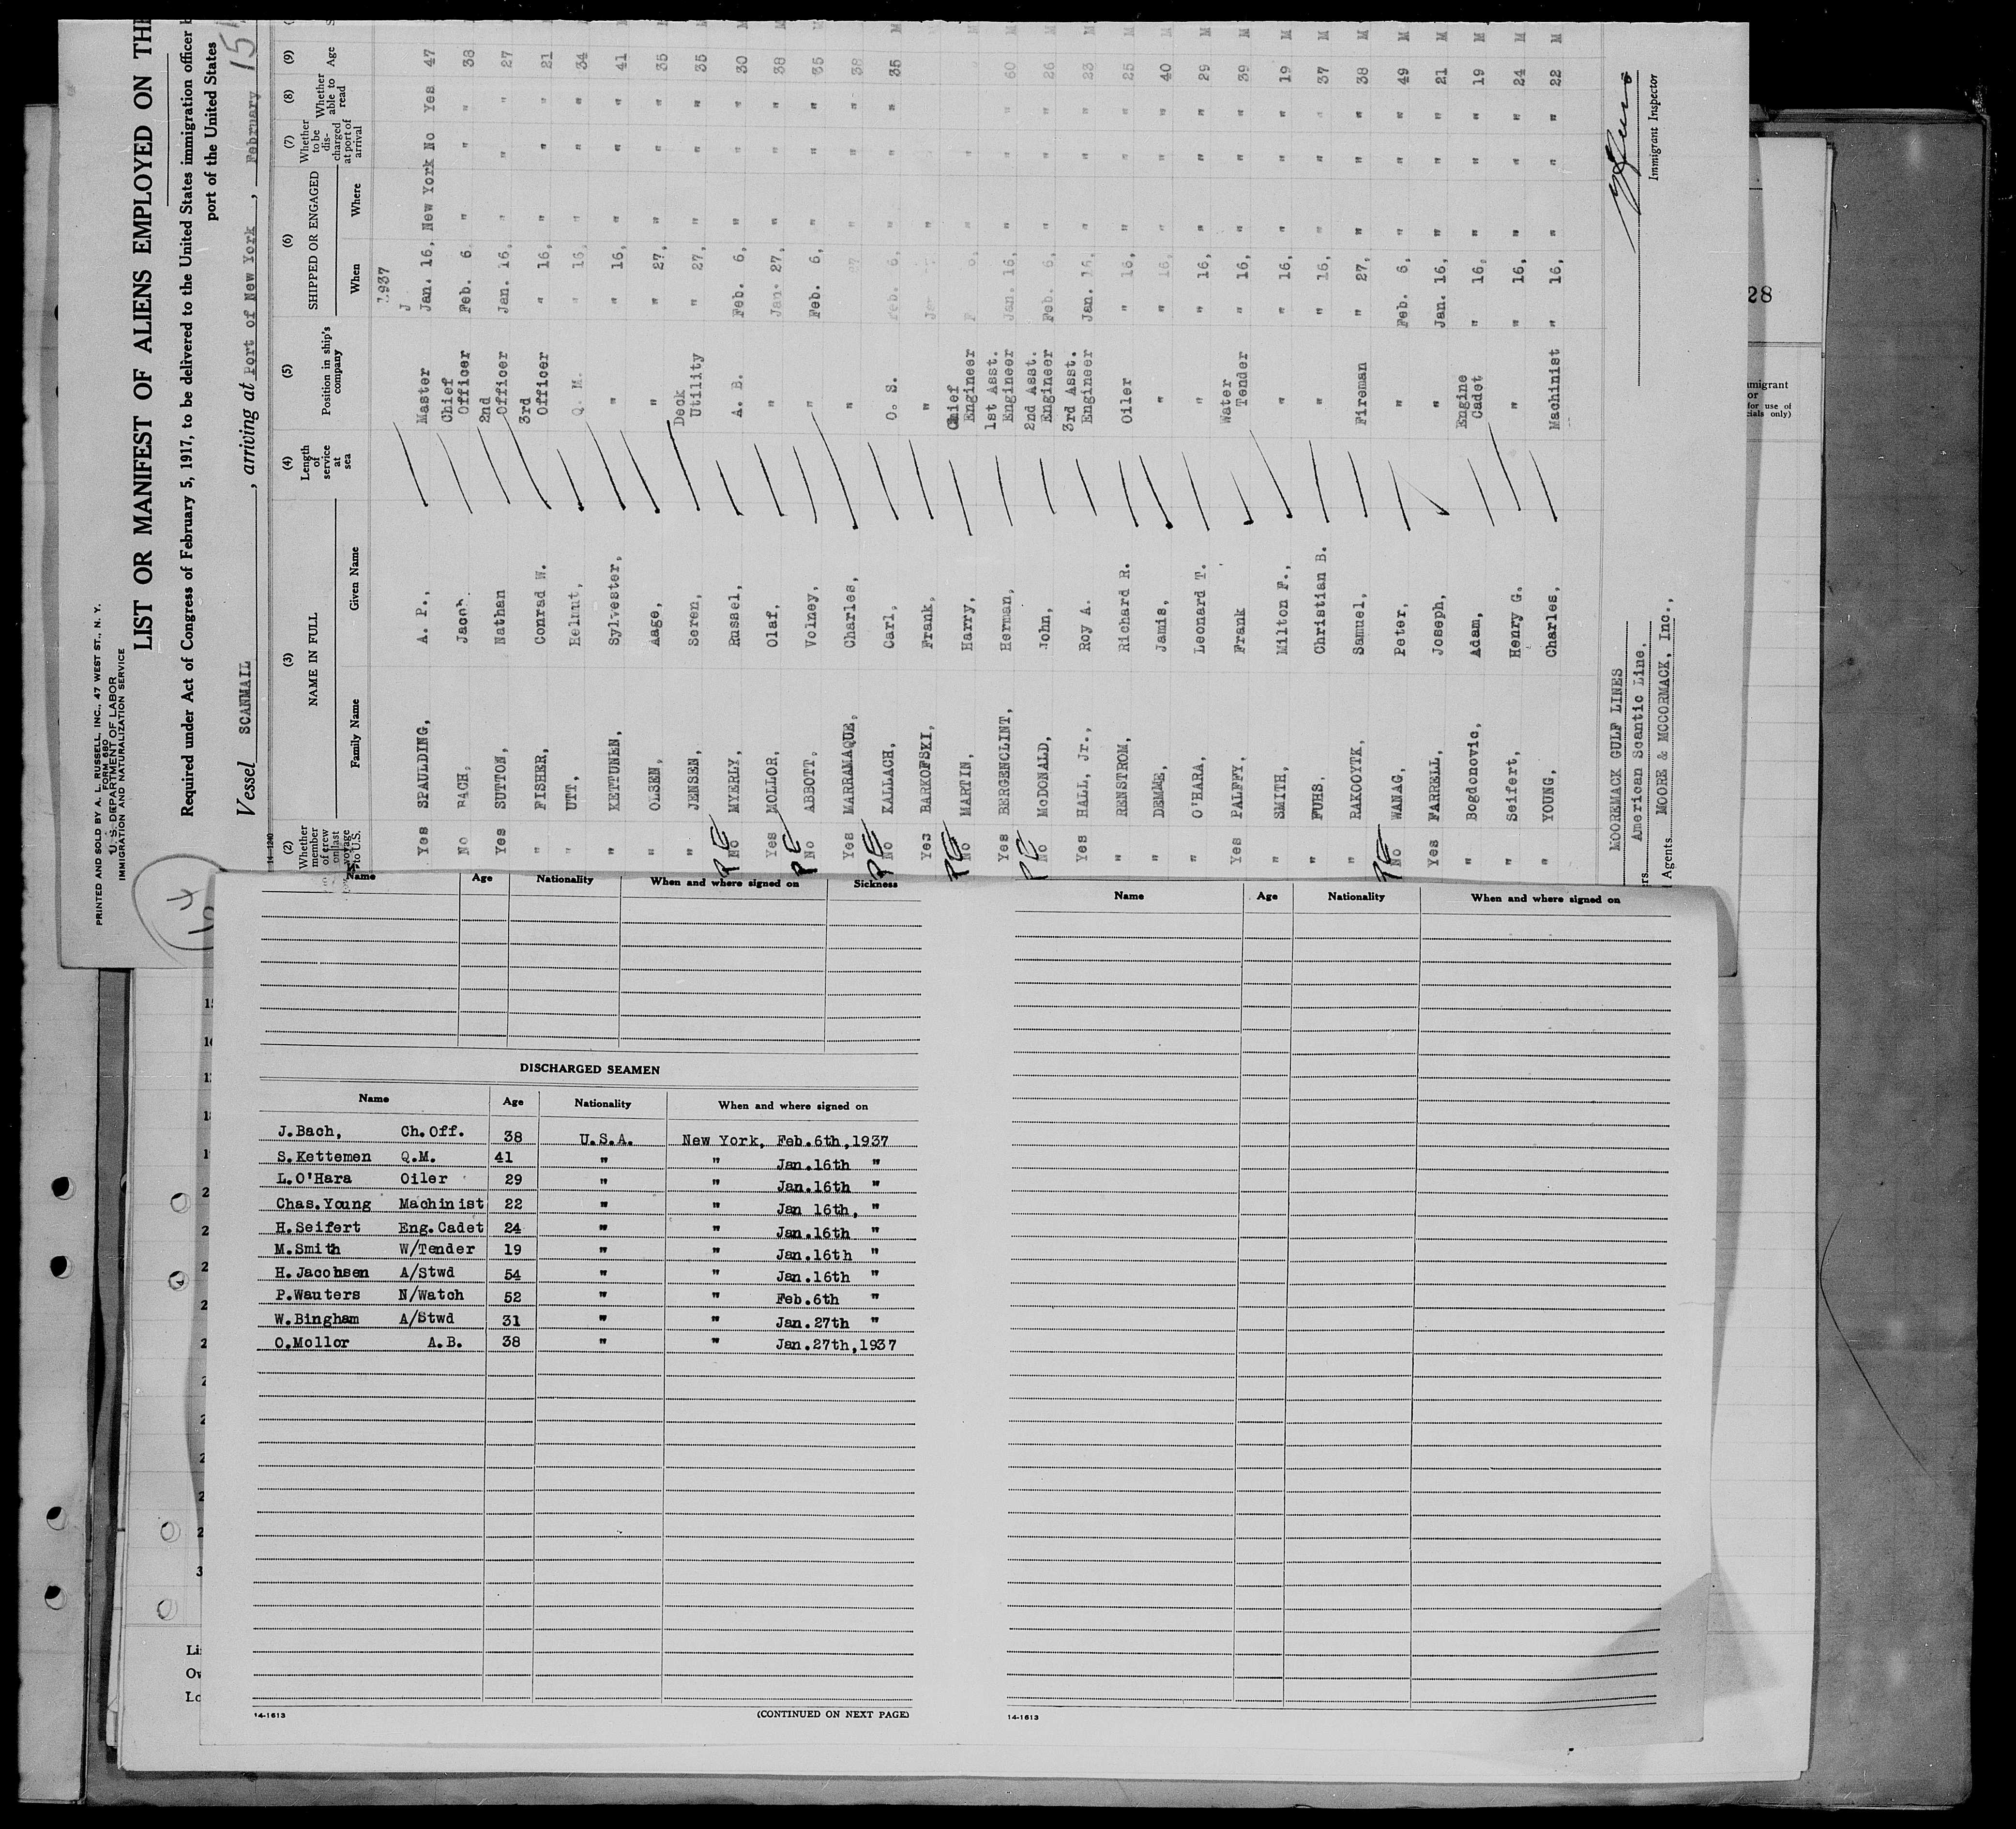 PRINTED AND SOLD BY A. L. RUSSELL, INC., 47 WEST ST., N. Y.
FORM 680
U. S. DEPARTMENT OF LABOR
IMMIGRATION AND NATURALIZATION SERVICE
LIST OR MANIFEST OF ALIENS EMPLOYED ON THE
Required under Act of Congress of February 5, 1917, to be delivered to the United States immigration officer
port of the United States
Vessel SCANMAIL, arriving at Port of New York, February 15
14-1240
(2) (3) (4) (5) (6) (7) (8) (9)
Whether member of crew on last voyage to U.S. NAME IN FULL Length of service at sea Position in ship's company SHIPPED OR ENGAGED Whether to be discharged at port of arrival Whether able to read Age
Family Name Given Name When Where
1937
Yes SPAULDING, A. P., Master Jan. 16, New York No Yes 47
No BACH, Jacob. Chief Officer Feb. 6. " " " 38
Yes SUTTON, Nathan 2nd Officer Jan. 16, " " " 27
" FISHER, Conrad W. 3rd Officer " 16, " " " 21
" UTT, Helmut, Q. M. " 16, " " " 34
" KETTUNEN, Sylvester, " " 16, " " " 41
" OLSEN, Aage, " " 27, " " " 35
" JENSEN, Seren, Deck Utility " 27, " " " 35
No MYERLY, Russel, A. B. Feb. 6, " " " 30
Yes MOLLOR, Olaf, " Jan. 27, " " " 38
No ABBOTT, Volney, " Feb. 6, " " " 35
Yes MARRAMAQUE, Charles, " 27 " " " 38
No KALLACH, Carl, O. S. Feb. 6, " " " 35
Yes BARKOFSKI, Frank, " " "
No MARTIN, Harry, Chief Engineer " "
Yes BERGENCLINT, Herman, 1st Asst. Engineer Jan. 16, " " " 60
No McDONALD, John, 2nd Asst. Engineer Feb. 6, " " " 26
Yes HALL, Jr., Roy A. 3rd Asst. Engineer Jan. 16, " " " 23
" RENSTROM, Richard R. Oiler " 16, " " " 25
" DEMME, Jamis, " " 16, " " " 40
" O'HARA, Leonard T. " " 16, " " " 29
Yes PALFFY, Frank Water Tender " 16, " " " 39
" SMITH, Milton F., " " 16, " " " 19
" FUHS, Christian B. " " 16, " " " 37
" RAKOOYTK, Samuel, Fireman " 27, " " " 38
No WANAG, Peter, " Feb. 6, " " " 49
Yes FARRELL, Joseph, " Jan. 16, " " " 21
" Bogdonovic, Adam, Engine Cadet " 16, " " " 19
" Seifert, Henry G. " " 16, " " " 24
" YOUNG, Charles, Machinist " 16, " " " 22
MOOREMACK GULF LINES
American Scantic Line,
Agents MOORE & MCCORMACK, Inc.,
Immigrant Inspector
28
Name Age Nationality When and where signed on Sickness
DISCHARGED SEAMEN
Name Age Nationality When and where signed on
J.Bach, Ch.Off. 38 U.S.A. New York, Feb.6th,1937
S.Kettemen Q.M. 41 " " Jan.16th "
L.O'Hara Oiler 29 " " Jan.16th "
Chas.Young Machinist 22 " " Jan 16th, "
H.Seifert Eng.Cadet 24 " " Jan.16th "
M.Smith W/Tender 19 " " Jan.16th "
H.Jacobsen A/Stwd 54 " " Jan.16th "
P.Wauters N/Watch 52 " " Feb.6th "
W.Bingham A/Stwd 31 " " Jan.27th "
O.Mollor A.B. 38 " " Jan.27th,1937
14-1613
(CONTINUED ON NEXT PAGE)
Name Age Nationality When and where signed on
14-1613